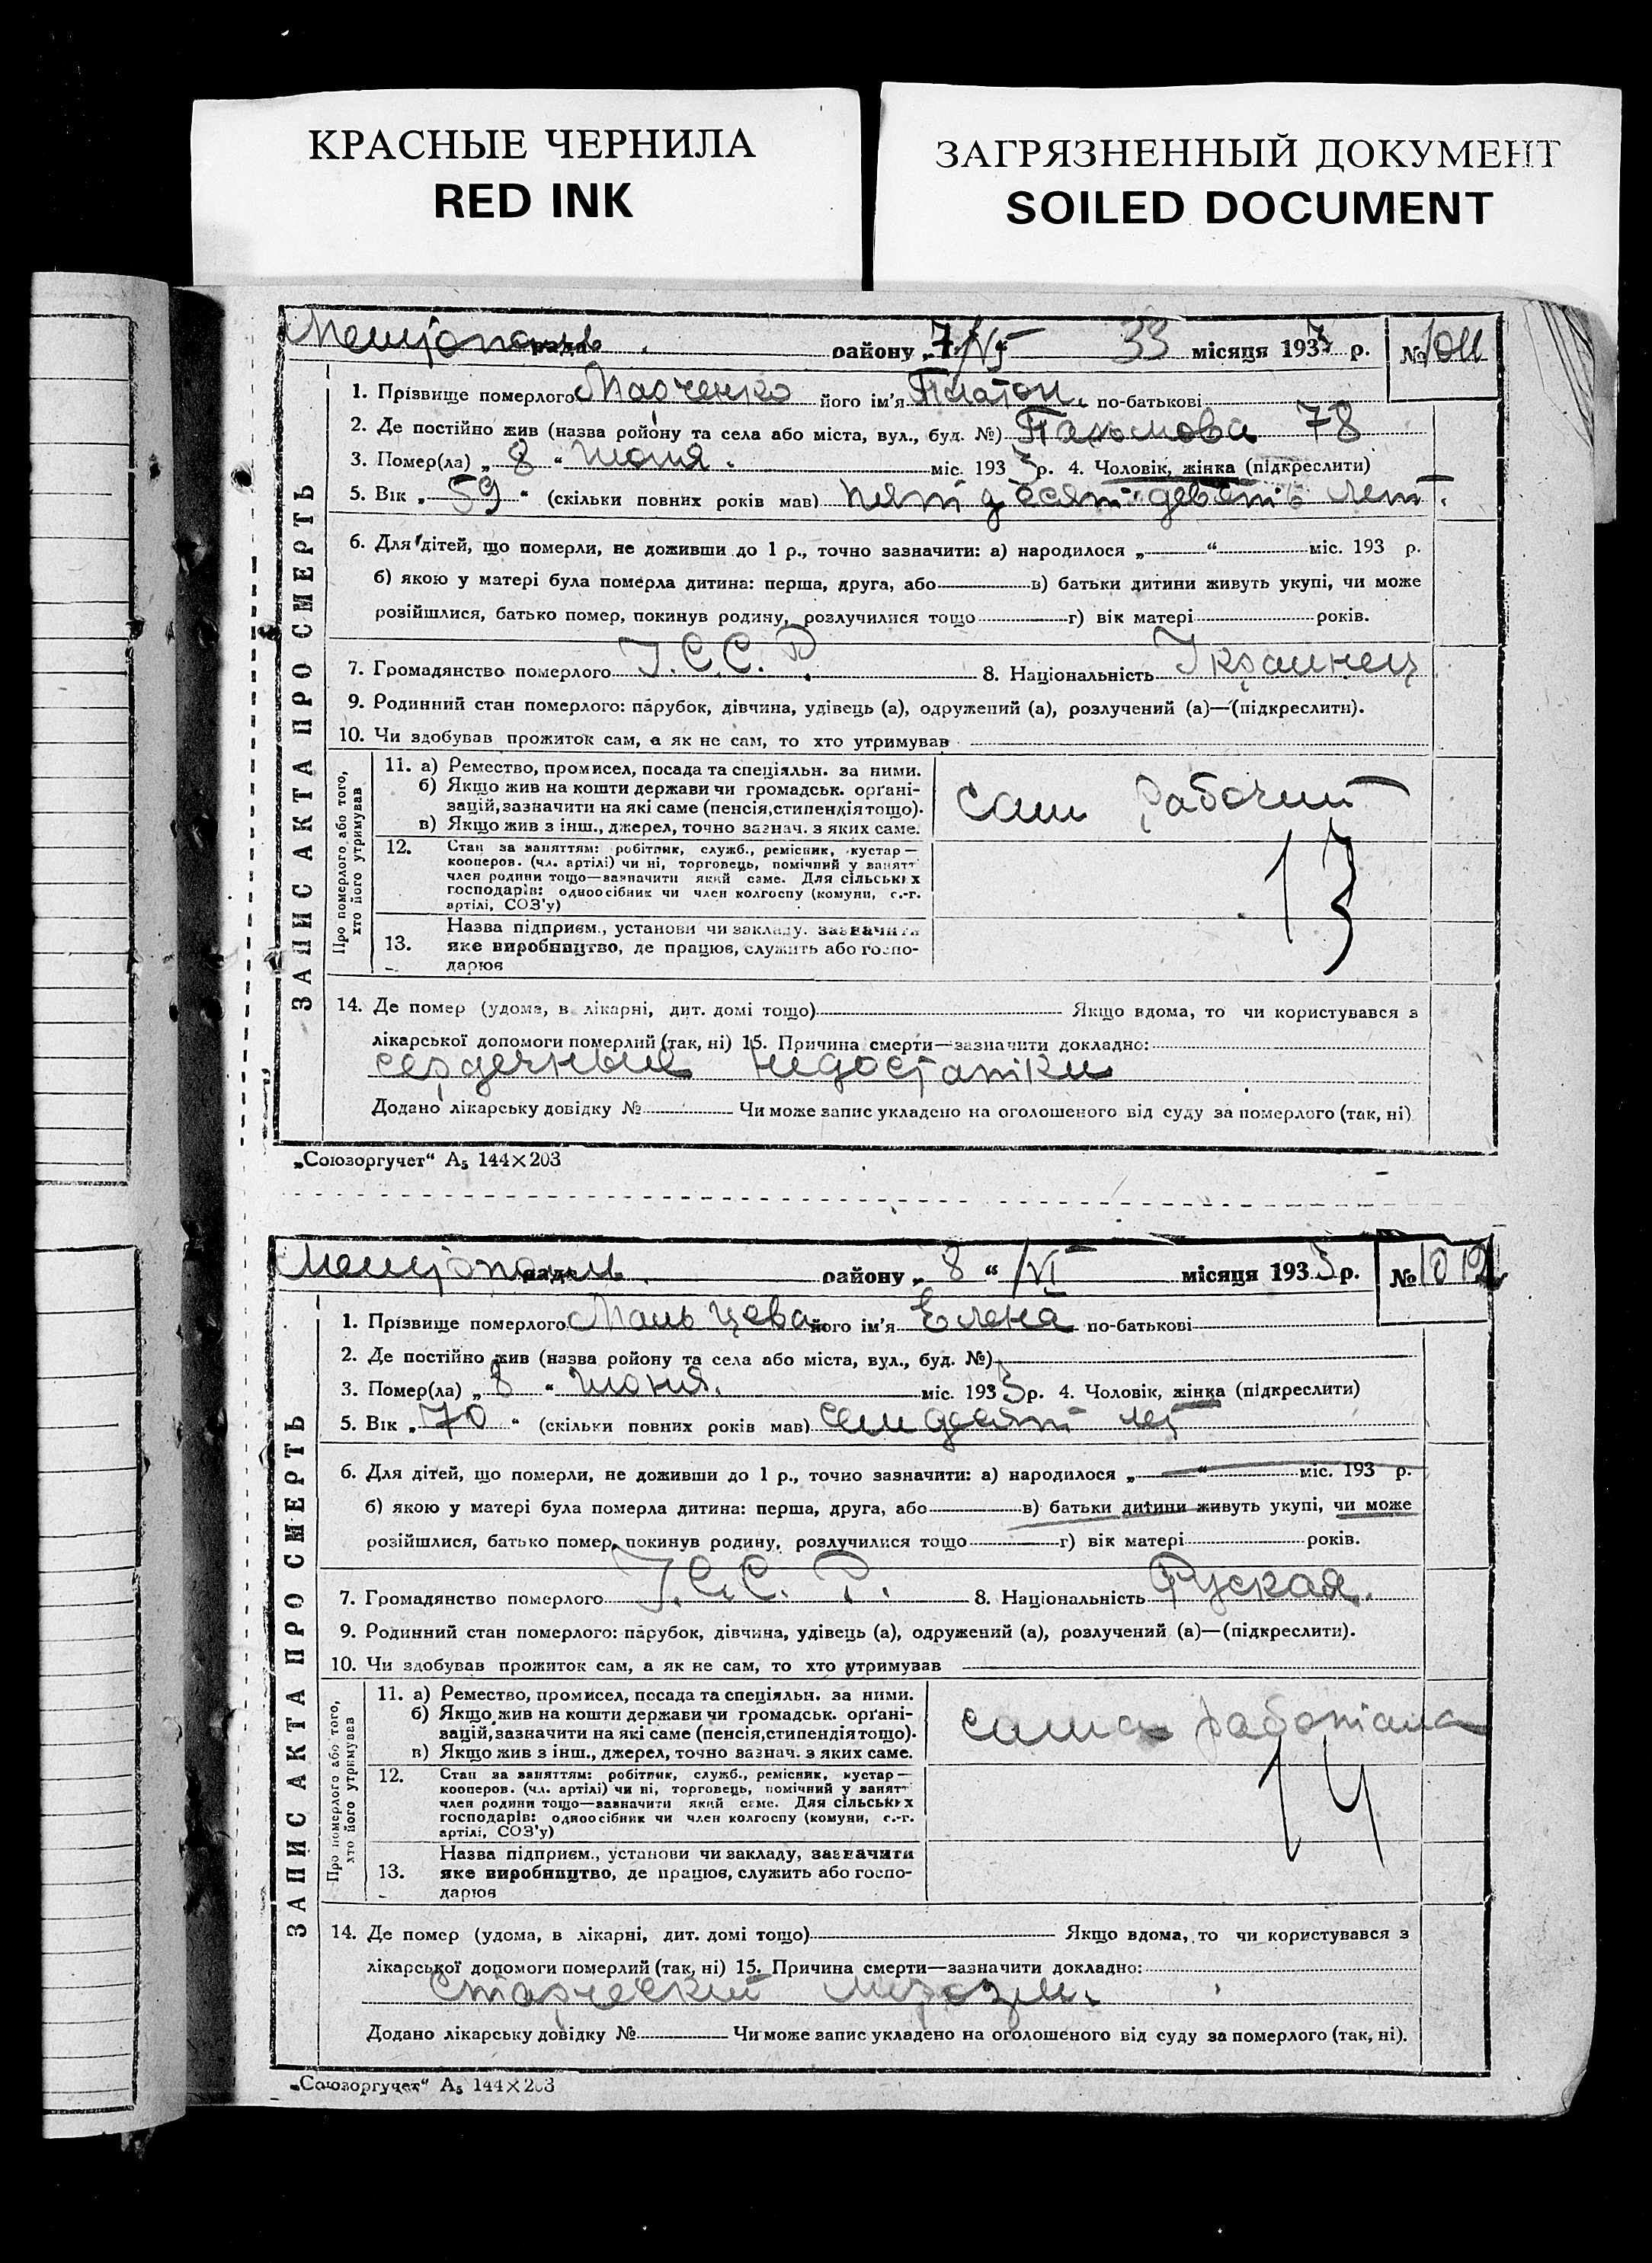 КРАСНЫЕ ЧЕРНИЛА
RED INK
ЗАГРЯЗНЕННЫЙ ДОКУМЕНТ
SOILED DOCUMENT
ЗАПИС АКТА ПРО СМЕРТЬ
району „7“ /VI 33 місяця 1933 р. № 1011
1. Прізвище померлого Марченко його ім'я Платон. по-батькові
2. Де постійно жив (назва ройону та села або міста, вул., буд. №) 78
3. Помер(ла) „ 8 “ июня. міс. 1933 р. 4. Чоловік, жінка (підкреслити)
5. Вік „ 59 “ (скільки повних років мав) пятдесят девять лет.
6. Для дітей, що померли, не доживши до 1 р., точно зазначити: а) народилося „ “ міс. 193 р.
б) якою у матері була померла дитина: перша, друга, або в) батьки дитини живуть укупі, чи може
розійшлися, батько помер, покинув родину, розлучилися тощо г) вік матері років.
7. Громадянство померлого У.С.С.Р. 8. Національність Украинец
9. Родинний стан померлого: парубок, дівчина, удівець (а), одружений (а), розлучений (а)—(підкреслити).
10. Чи здобував прожиток сам, а як не сам, то хто утримував
Про померлого або того, хто його утримував
11. а) Ремество, промисел, посада та спеціяльн. за ними.
б) Якщо жив на кошти держави чи громадськ. орґані-
зацій, зазначити на які саме (пенсія, стипендія тощо).
в) Якщо жив з інш., джерел, точно зазнач. з яких саме.
сам рабочий
12. Стан за заняттям: робітник, служб., ремісник, кустар—
кооперов. (чл. артілі) чи ні, торговець, помічний у занятт
член родини тощо—зазначити який саме. Для сільських
господарів: одноосібник чи член колгоспу (комуни, с.-г.
артілі, СОЗ'у)
13
13. Назва підприєм., установи чи закладу, зазначити
яке виробництво, де працює, служить або госпо-
дарює
14. Де помер (удома, в лікарні, дит. домі тощо) Якщо вдома, то чи користувався з
лікарської допомоги померлий (так, ні) 15. Причина смерти—зазначити докладно:
сердечные недостатки
Додано лікарську довідку № Чи може запис укладено на оголошеного від суду за померлого (так, ні)
„Союзоргучет“ А₅ 144×203
ЗАПИС АКТА ПРО СМЕРТЬ
району „ 8 “ /VI місяця 1933 р. № 1012
1. Прізвище померлого Мальцева його ім'я Елена по-батькові
2. Де постійно жив (назва ройону та села або міста, вул., буд. №)
3. Помер(ла) „ 8 “ июня. міс. 1933 р. 4. Чоловік, жінка (підкреслити)
5. Вік „ 70 “ (скільки повних років мав) семдесят лет
6. Для дітей, що померли, не доживши до 1 р., точно зазначити: а) народилося „ “ міс. 193 р.
б) якою у матері була померла дитина: перша, друга, або в) батьки дитини живуть укупі, чи може
розійшлися, батько помер, покинув родину, розлучилися тощо г) вік матері років.
7. Громадянство померлого У.С.С.Р. 8. Національність Руская.
9. Родинний стан померлого: парубок, дівчина, удівець (а), одружений (а), розлучений (а)—(підкреслити).
10. Чи здобував прожиток сам, а як не сам, то хто утримував
Про померлого або того, хто його утримував
11. а) Ремество, промисел, посада та спеціяльн. за ними.
б) Якщо жив на кошти держави чи громадськ. орґані-
зацій, зазначити на які саме (пенсія, стипендія тощо).
в) Якщо жив з інш., джерел, точно зазнач. з яких саме.
сама работала
12. Стан за заняттям: робітник, служб., ремісник, кустар—
кооперов. (чл. артілі) чи ні, торговець, помічний у занятт
член родини тощо—зазначити який саме. Для сільських
господарів: одноосібник чи член колгоспу (комуни, с.-г.
артілі, СОЗ'у)
14
13. Назва підприєм., установи чи закладу, зазначити
яке виробництво, де працює, служить або госпо-
дарює
14. Де помер (удома, в лікарні, дит. домі тощо) Якщо вдома, то чи користувався з
лікарської допомоги померлий (так, ні) 15. Причина смерти—зазначити докладно:
Старческий
Додано лікарську довідку № Чи може запис укладено на оголошеного від суду за померлого (так, ні).
„Союзоргучет“ А₅ 144×203